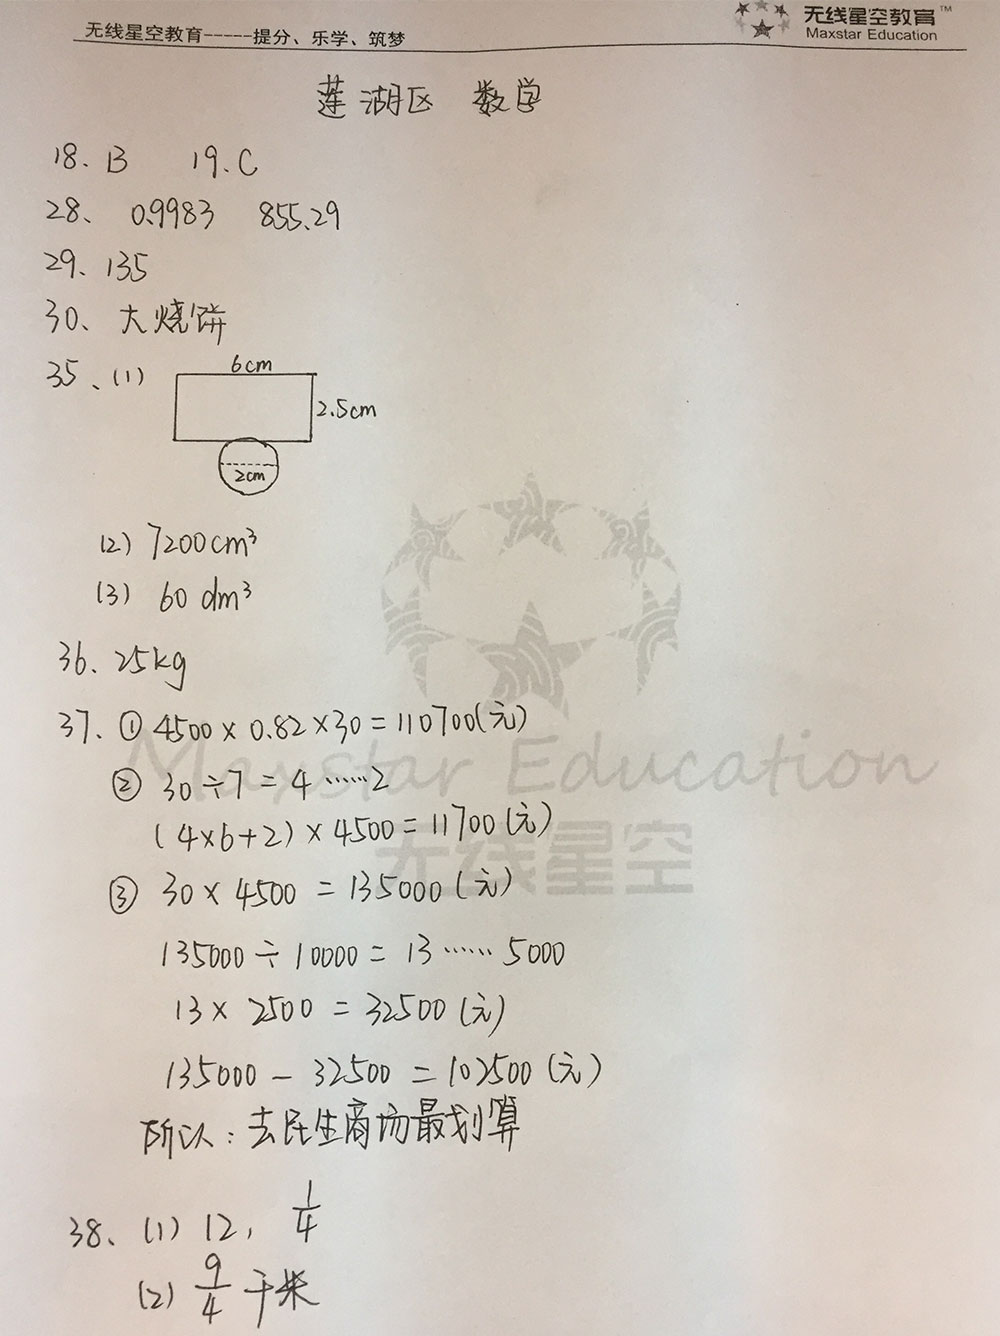 无线星空教育-----提分、乐学、筑梦
无线星空教育™
Maxstar Education
莲湖区 数学
18、B 19.C
28、 0.9983 855.29
29、135
30、大烧饼
35、(1)
6cm
2.5cm
2cm
(2) 7200cm³
(3) 60 dm³
36、25kg
37、① 4500×0.82×30=110700(元)
② 30÷7=4……2
(4×6+2)×4500=11700(元)
③ 30×4500=135000(元)
135000÷10000=13……5000
13×2500=32500(元)
135000-32500=102500(元)
所以:去民生商场最划算
38、(1) 12, 1/4
(2) 9/4 千米
Maxstar Education
无线星空